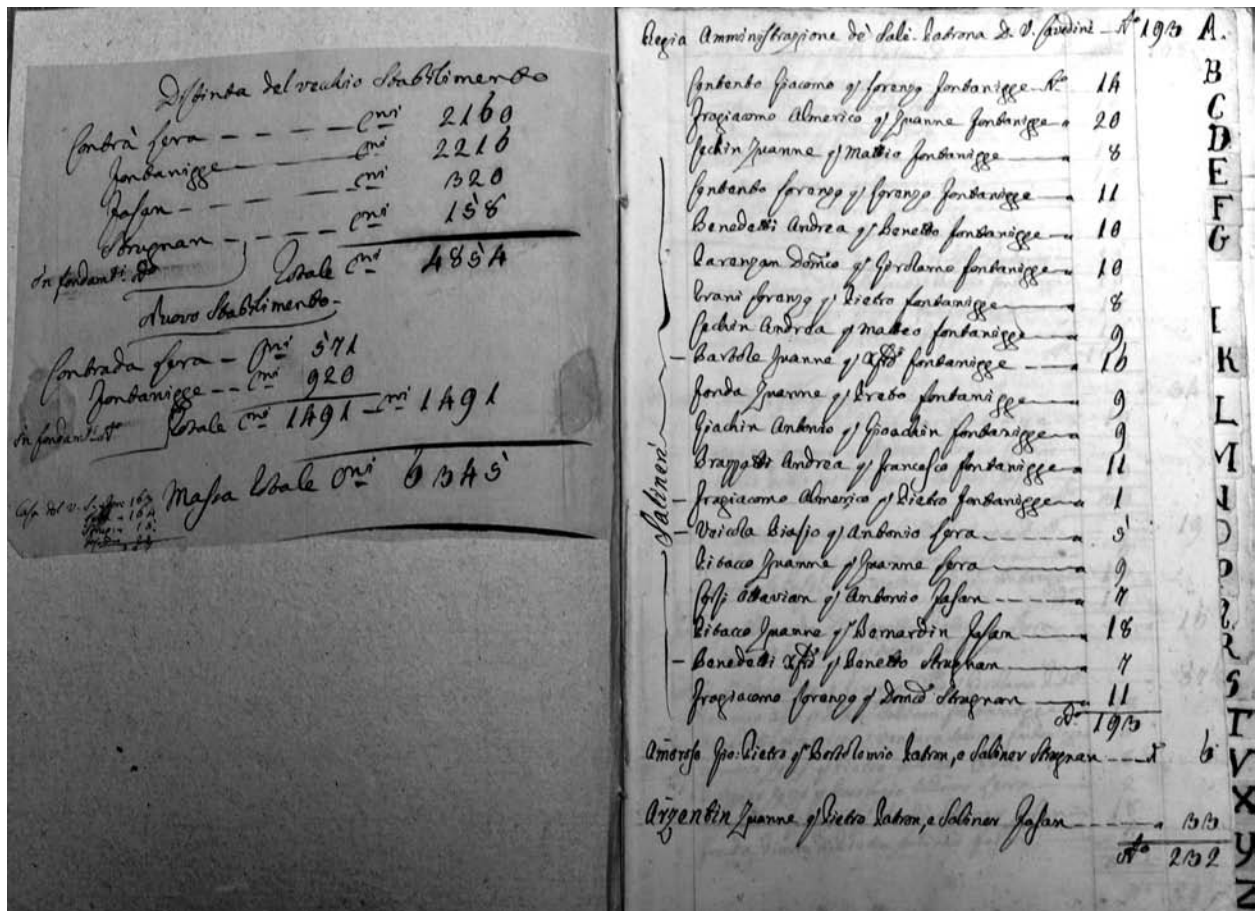 Distinta del vecchio Stabilimento
Contrà Lera C.ni 2160
Fontanigge C.ni 2216
Fasan C.ni 320
Strugnan C.ni 158
in fondam.ti N.o Totale C.ni 4854
Nuovo Stabilimento
Contrada Lera C.ni 571
Fontanigge C.ni 920
in fondam.ti N.o Totale C.ni 1491 C.ni 1491
Massa Totale C.ni 6345
Regia Amministrazione de Sali Patrona N.o 193
Contento Giacomo q.m Lorenzo Fontanigge N.o 14
Fragiacomo Almerico q.m Zuanne Fontanigge 20
Zechin Zuanne q.m Mattio Fontanigge 8
Contento Lorenzo q.m Lorenzo Fontanigge 11
Benedetti Andrea q.m Benetto Fontanigge 10
Parenzan Dom.co q.m Girolamo Fontanigge 10
Trani Lorenzo q.m Pietro Fontanigge 8
Zechin Andrea q.m Matteo Fontanigge 9
Bartole Zuanne q.m Fontanigge 16
Fonda Zuanne q.m Fontanigge 9
Giachin Antonio q.m Gioachin Fontanigge 9
Andrea q.m Francesco Fontanigge 11
Fragiacomo Almerico q.m Pietro Fontanigge 1
Biasio q.m Antonio Lera 5
Pitacco Zuanne q.m Zuanne Lera 9
Corsi Ottavian q.m Antonio Fasan 7
Pitacco Zuanne q.m Bernardin Fasan 18
Benedetti q.m Benetto Strugnan 7
Fragiacomo Lorenzo q.m Dom.co Strugnan 11
N.o 193
Salineri
Amoroso Gio: Pietro q.m Bortolomio Patron, e Saliner Strugnan 6
Argentin Zuanne q.m Pietro Patron, e Saliner Fasan 33
N.o 232
A.
B
C
D
E
F
G
I
K
L
M
N
O
P
Q
R
S
T
V
X
Y
Z